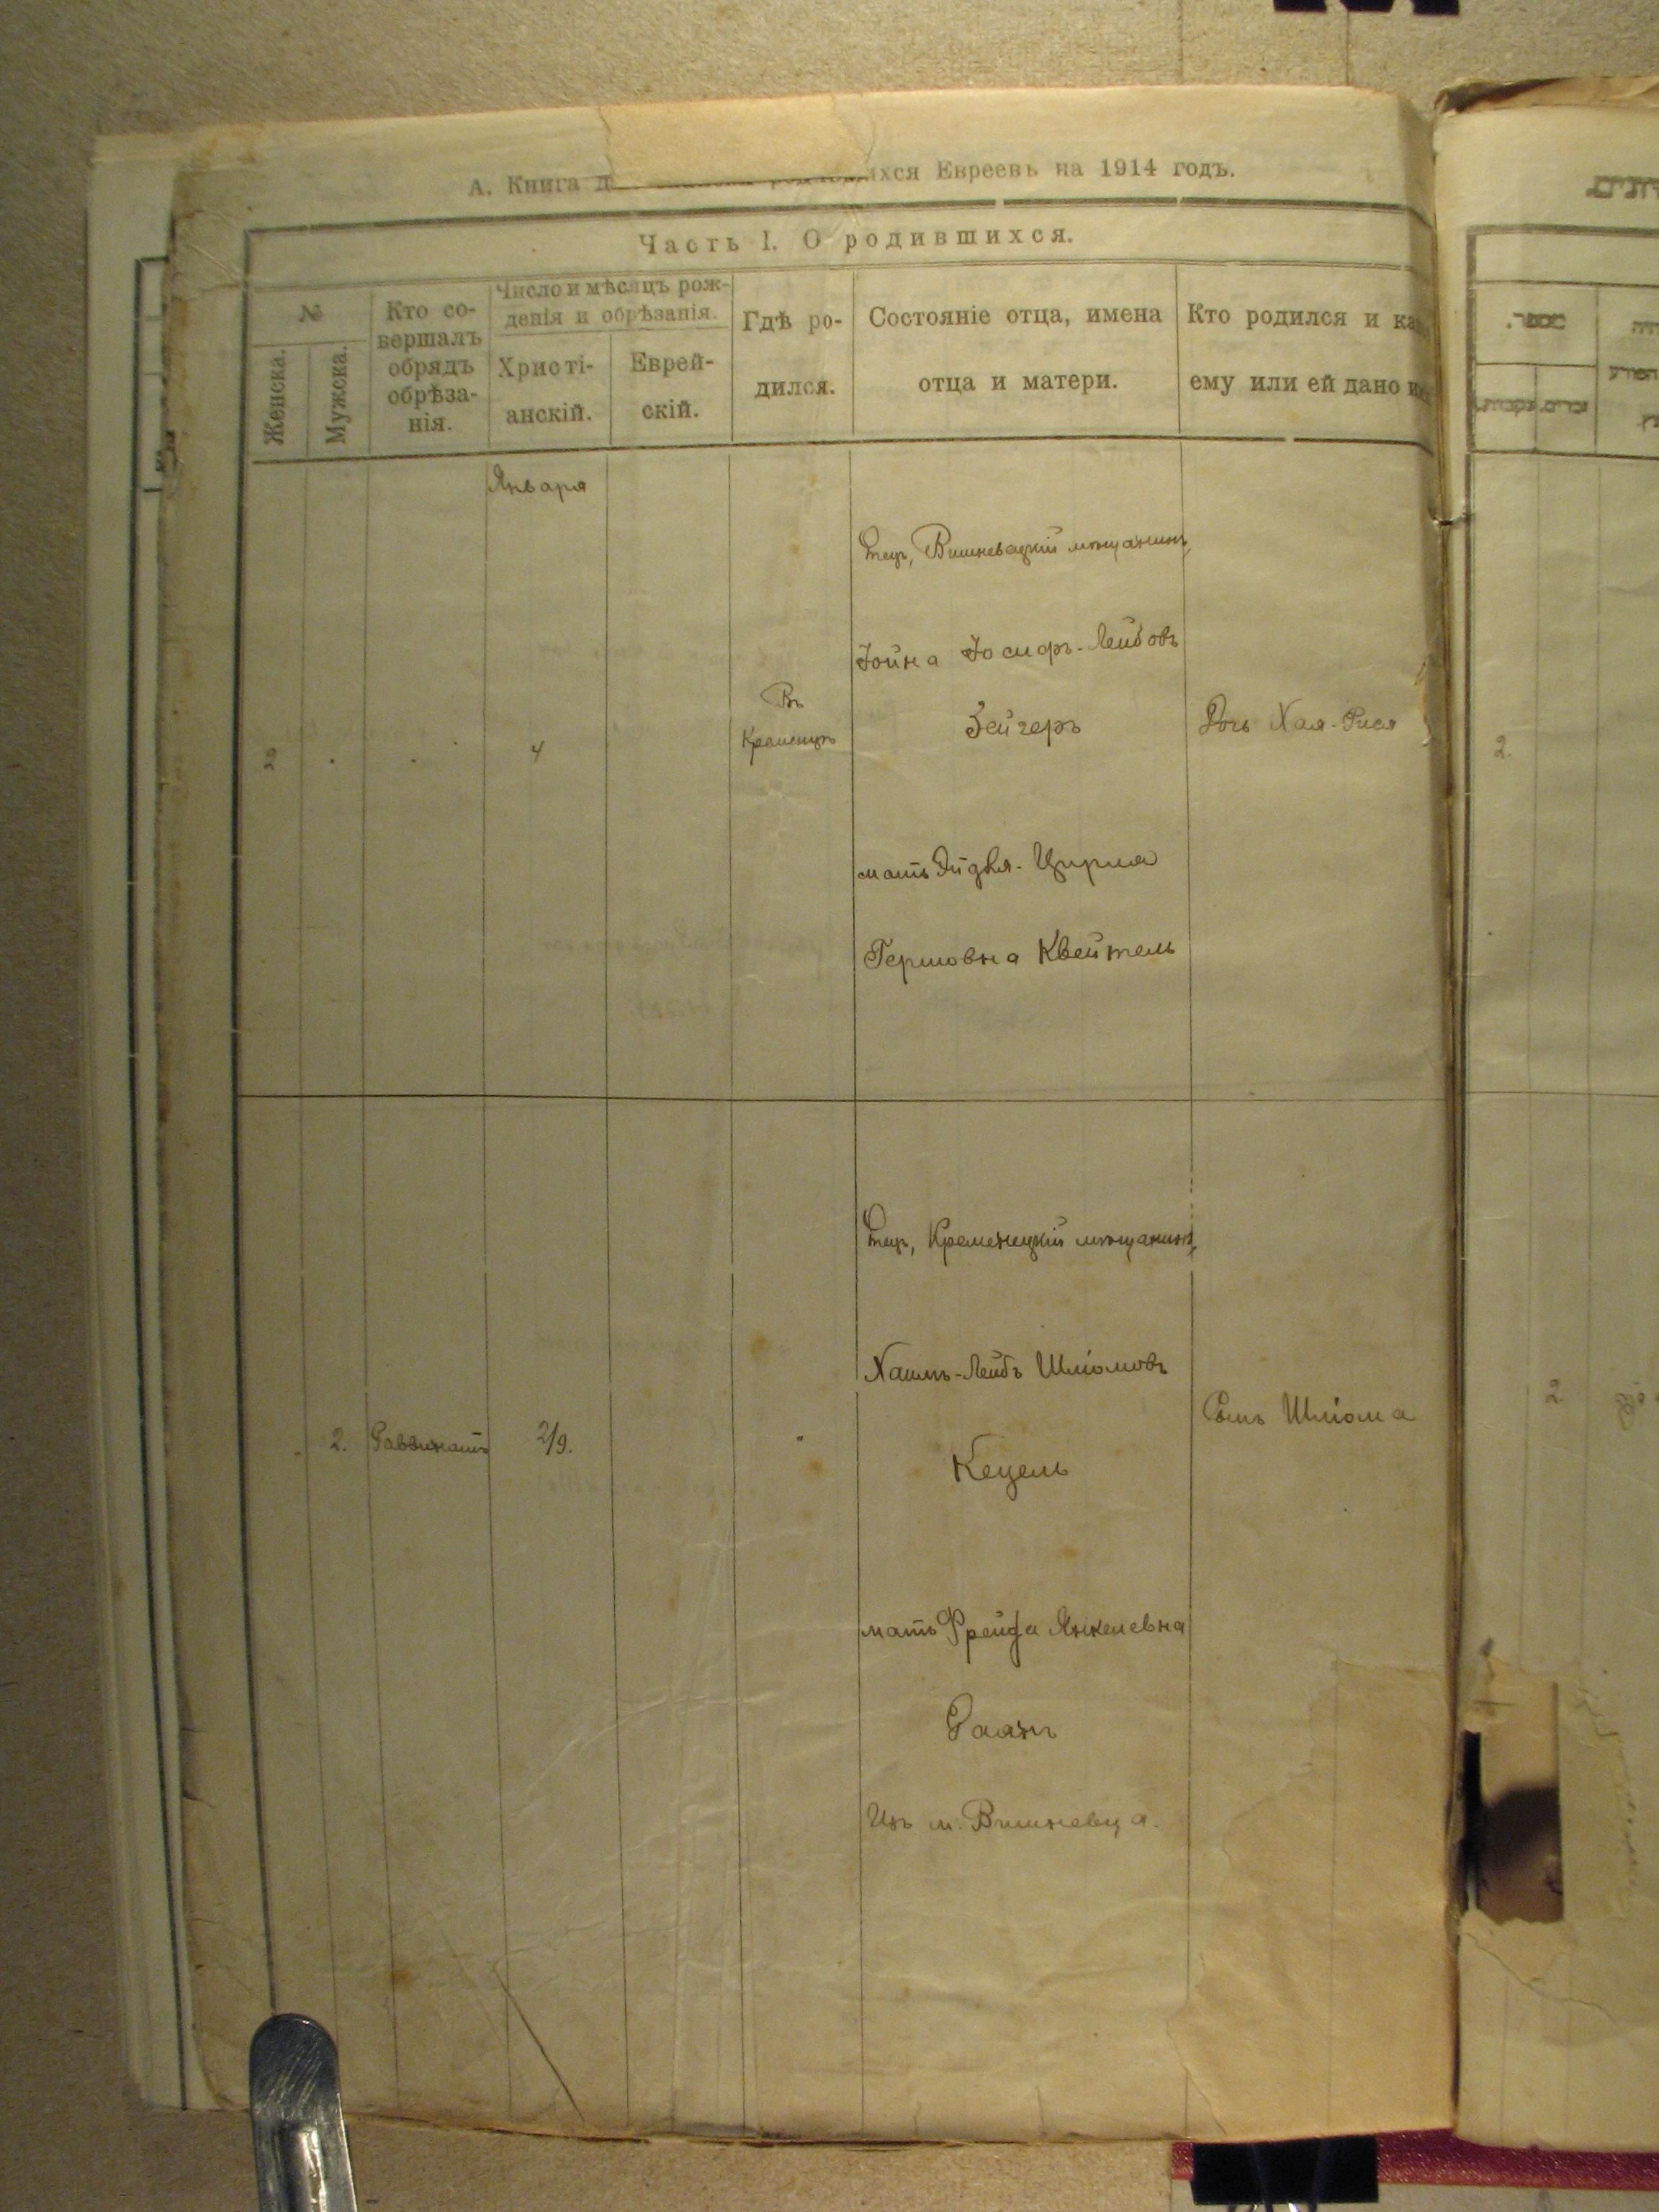 А. Книга д ихся Евреевъ на 1914 годъ.
Часть I. О родившихся.
№
Женска.
Мужска.
Кто со-
вершалъ
обрядъ
обрѣза-
нія.
Число и мѣсяцъ рож-
денія и обрѣзанія.
Христі-
анскій.
Еврей-
скій.
Гдѣ ро-
дился.
Состояніе отца, имена
отца и матери.
Кто родился и ка
ему или ей дано и
Января
2
4
Въ
Кременцѣ
Отецъ, Вишневацкій мѣщанинъ,
Іойна Іосифъ-Лейбовъ
Зейгеръ
мать Эйдля-Цирла
Гершовна Квейтель
Дочь Хая-Рися
2.
2.
Раввинатъ
2/9.
"
Отецъ, Кременецкій мѣщанинъ,
Хаимъ-Лейбъ Шліомовъ
Кецель
мать Фрейда Янкелевна
Раанъ
Изъ м. Вишневца.
Сынъ Шліома
2